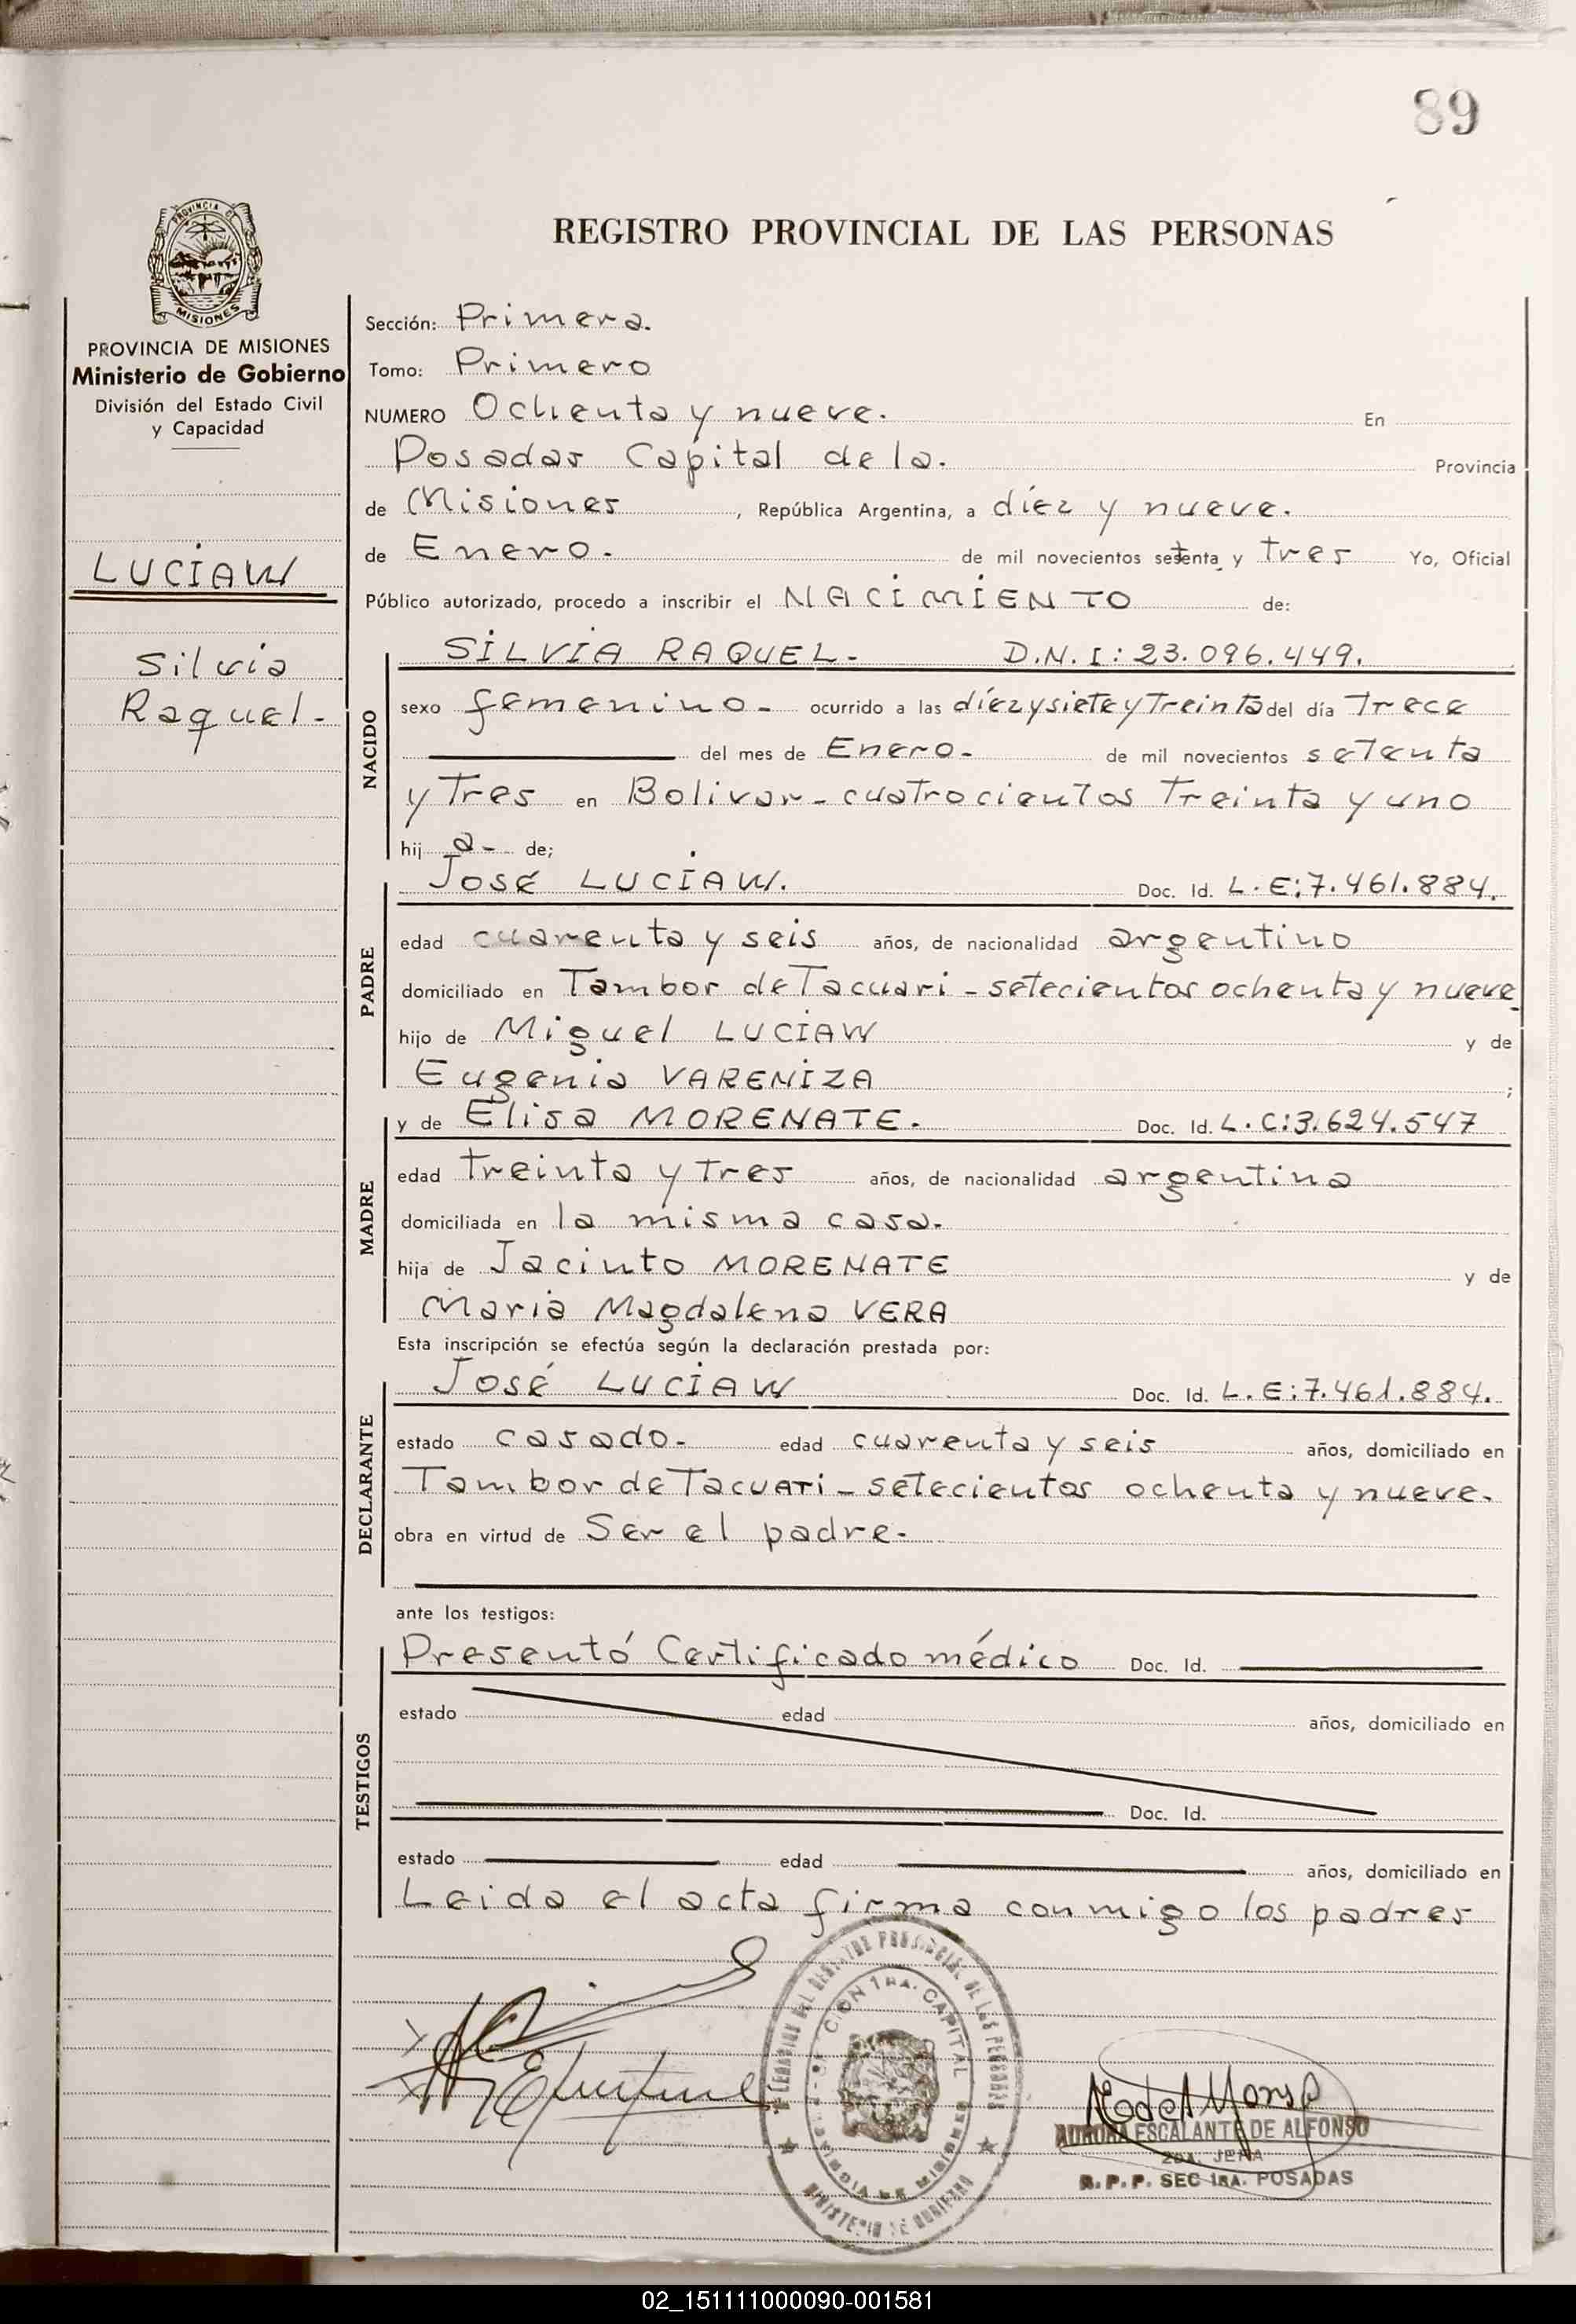 89
REGISTRO PROVINCIAL DE LAS PERSONAS
PROVINCIA DE
MISIONES
PROVINCIA DE MISIONES
Ministerio de Gobierno
División del Estado Civil
y Capacidad
LUCIAW
Silvia
Raquel-
Sección: Primera.
Tomo: Primero
NUMERO Ochenta y nueve. En
Posadas Capital de la. Provincia
de Misiones, República Argentina, a diez y nueve.
de Enero. de mil novecientos setenta y tres Yo, Oficial
Público autorizado, procedo a inscribir el NACIMIENTO de:
NACIDO
SILVIA RAQUEL- D.N.I: 23.096.449.
sexo femenino- ocurrido a las diez y siete y treinta del día trece
del mes de Enero- de mil novecientos setenta
y tres en Bolivar-cuatrocientos treinta y uno
hij a- de;
PADRE
José LUCIAW. Doc. Id. L.E:7.461.884.
edad cuarenta y seis años, de nacionalidad argentino
domiciliado en Tambor de Tacuari-setecientos ochenta y nueve
hijo de Miguel LUCIAW y de
Eugenia VARENIZA ;
MADRE
y de Elisa MORENATE. Doc. Id. L.C:3.624.547
edad treinta y tres años, de nacionalidad argentina
domiciliada en la misma casa.
hija de Jacinto MORENATE y de
Maria Magdalena VERA
Esta inscripción se efectúa según la declaración prestada por:
DECLARANTE
José LUCIAW Doc. Id. L.E:7.461.884.
estado casado- edad cuarenta y seis años, domiciliado en
Tambor de Tacuari-setecientos ochenta y nueve.
obra en virtud de Ser el padre-
ante los testigos:
TESTIGOS
Presentó Certificado médico Doc. Id.
estado edad años, domiciliado en
Doc. Id.
estado edad años, domiciliado en
Leida el acta firma conmigo los padres
PROVINCIAL DE LAS PERSONAS
CION 1RA. CAPITAL
MINISTERIO DE GOBIERNO
AURORA ESCALANTE DE ALFONSO
2DA. JEFA
R.P.P. SEC 1RA. POSADAS
02_151111000090-001581